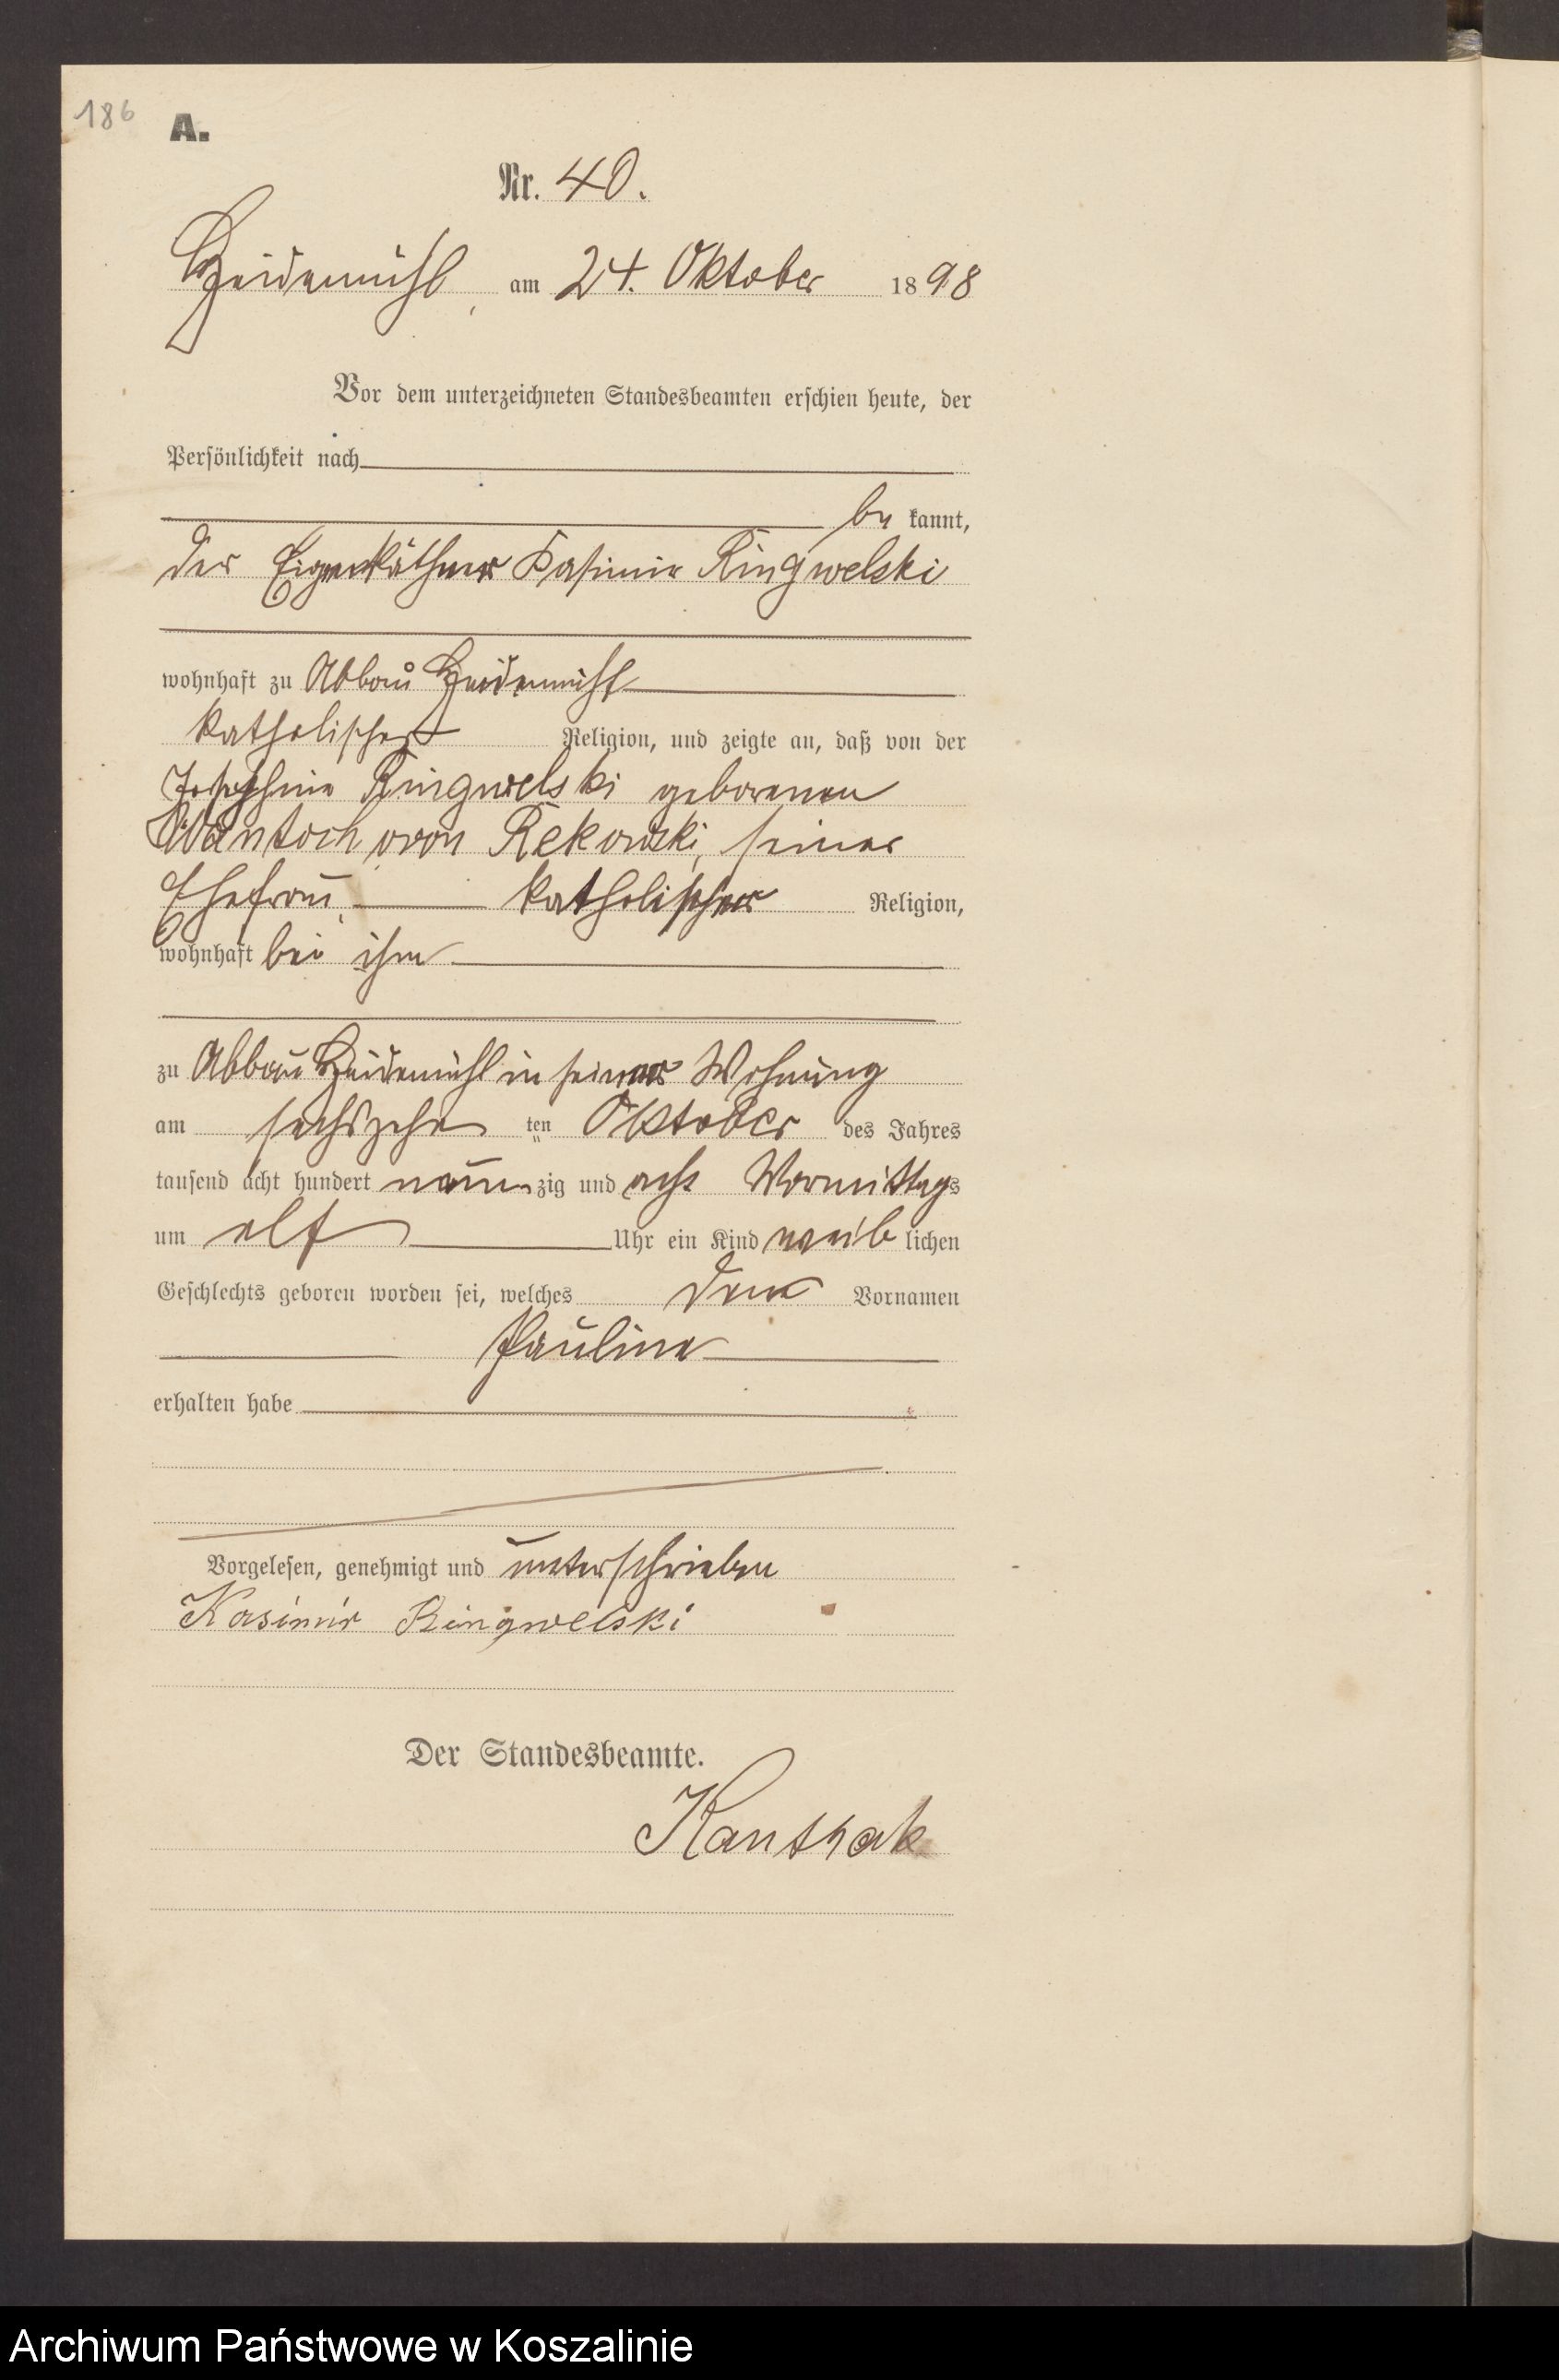 186
A.
Nr. 40.
Heidemühl, am 24. Oktober 1898
Vor dem unterzeichneten Standesbeamten erschien heute, der
Persönlichkeit nach
be kannt,
der Eigenkäthner Kasimir Ringwelski
wohnhaft zu Abbau Heidemühl
katholischer Religion, und zeigte an, daß von der
Josephine Ringwelski geborenen
Wantoch von Rekowski, seiner
Ehefrau, katholischer Religion,
wohnhaft bei ihm
zu Abbau Heidemühl in seiner Wohnung
am sechszehn ten Oktober des Jahres
tausend acht hundert neunzig und acht Vormittags
um elf Uhr ein Kind weiblichen
Geschlechts geboren worden sei, welches den Vornamen
Pauline
erhalten habe
Vorgelesen, genehmigt und unterschrieben
Kasimir Ringwelski
Der Standesbeamte.
Kanthak
Archiwum Państwowe w Koszalinie